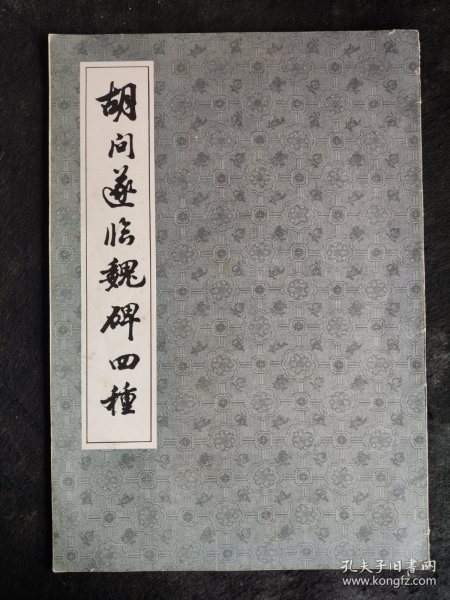 胡问遂临魏碑四種
孔夫子旧书网
www.kongfz.com